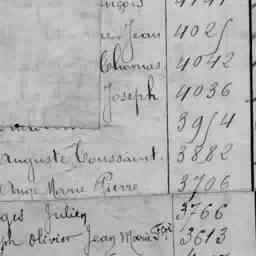 Jean 4025
Thomas 4042
Joseph 4036
3954
Auguste Toussaint. 3882
Ange Marie Pierre 3706
ges Julien 3766
ph Olivier Jean Marie Fçois 3613